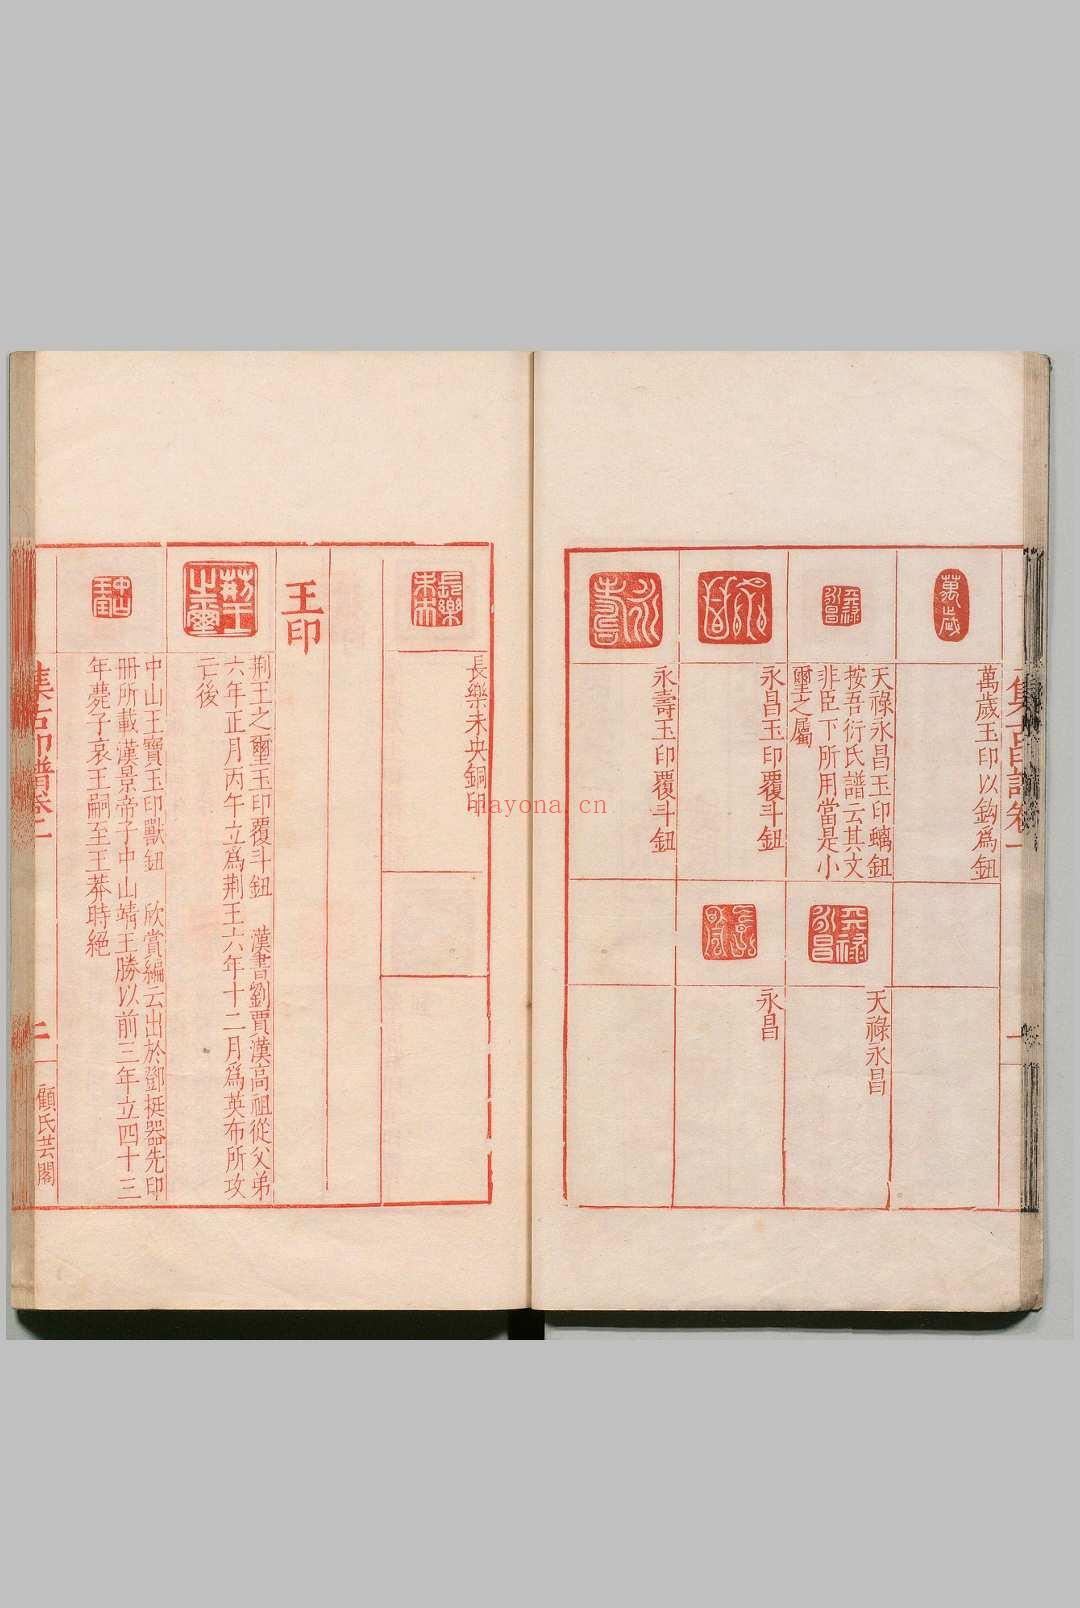 集古印譜卷一
一
萬歲
萬歲玉印以鈎爲鈕
天祿
永昌
天祿永昌玉印螭鈕
按吾衍氏譜云其文
非臣下所用當是小
璽之屬
天祿
永昌
天祿永昌
永昌
永昌玉印覆斗鈕
永昌
永昌
永壽
永壽玉印覆斗鈕
長樂
未央
長樂未央銅印
王印
荊王
之璽
荊王之璽玉印覆斗鈕　漢書劉賈漢高祖從父弟
六年正月丙午立爲荊王六年十二月爲英布所攻
亡後
中山
王寶
中山王寶玉印獸鈕　欣賞編云出於鄧挺器先印
冊所載漢景帝子中山靖王勝以前三年立四十三
年薨子哀王嗣至王莽時絕
集古印譜卷一
二
顧氏芸閣
nayona.cn